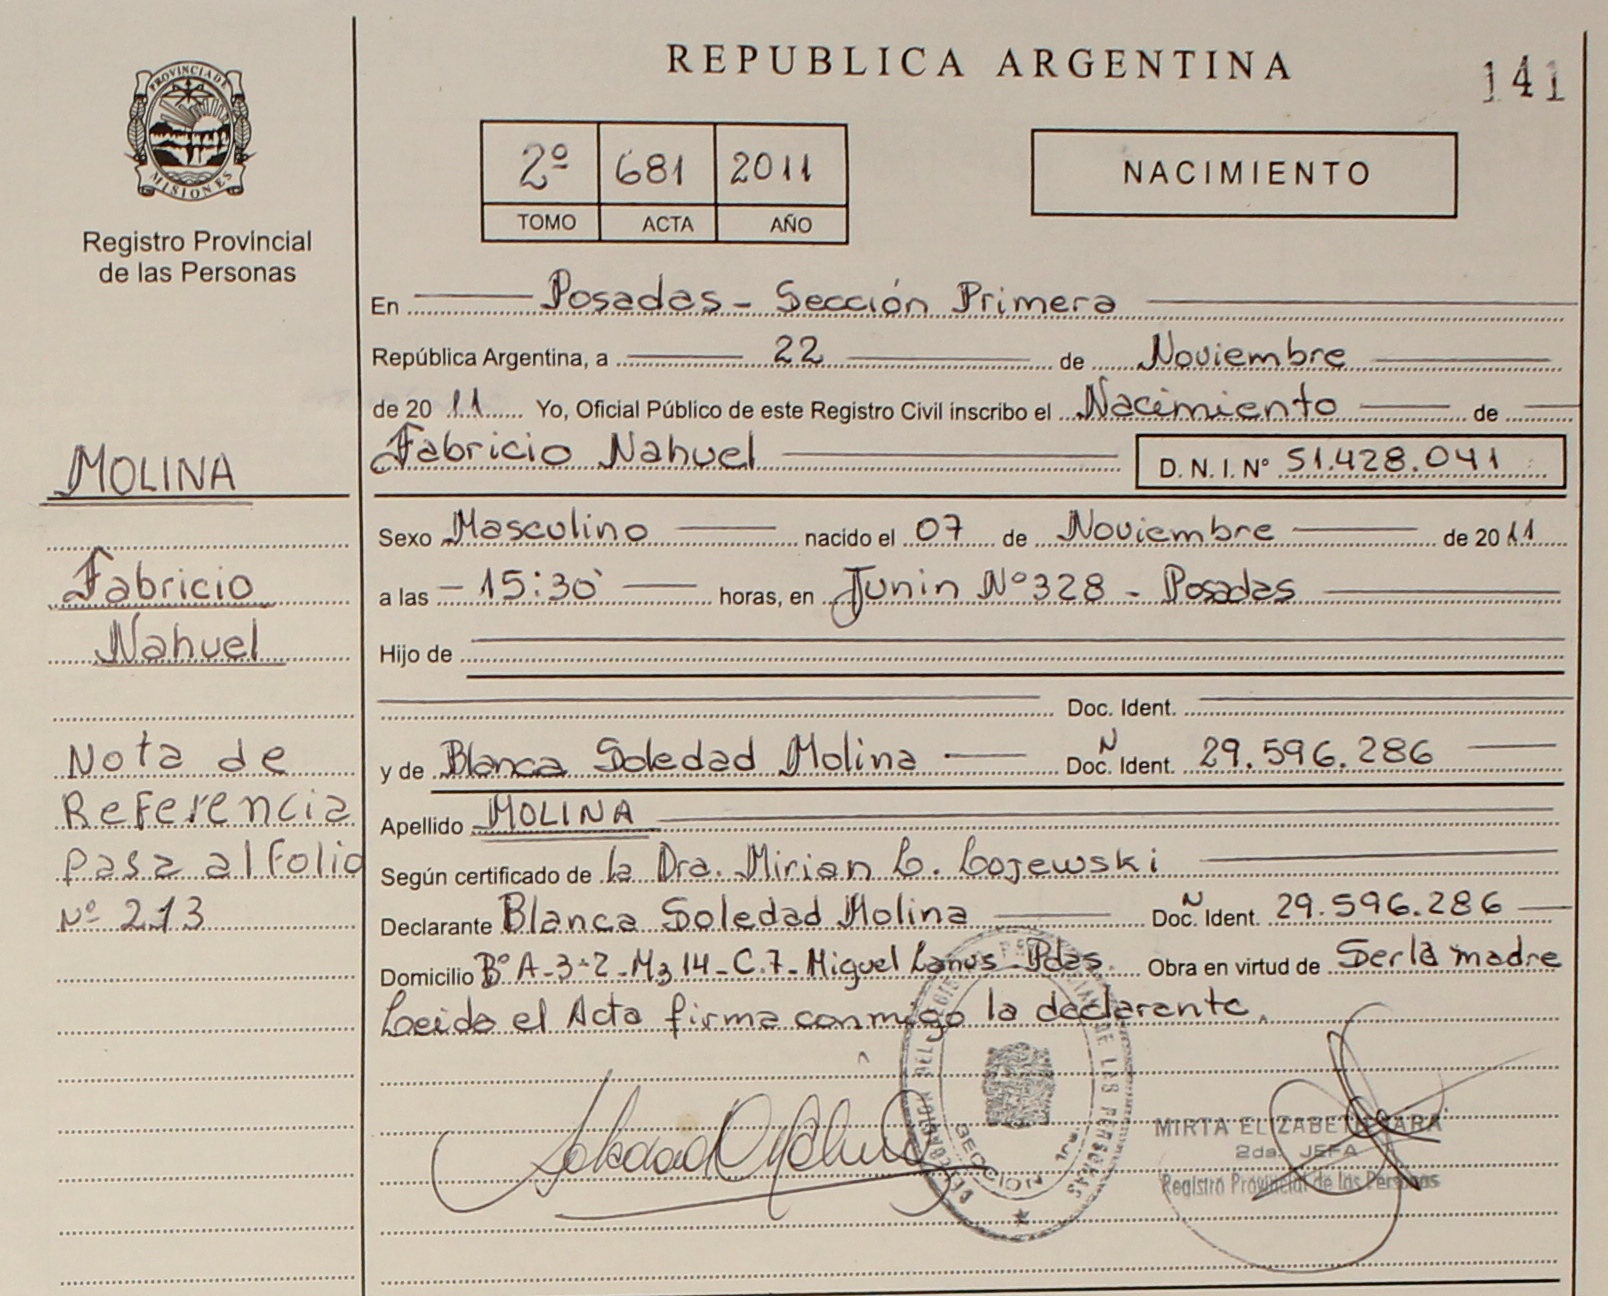 PROVINCIA DE
MISIONES
Registro Provincial
de las Personas
REPUBLICA ARGENTINA
141
2º 681 2011
TOMO ACTA AÑO
NACIMIENTO
En Posadas - Sección Primera
República Argentina, a 22 de Noviembre
de 20 11 Yo, Oficial Público de este Registro Civil inscribo el Nacimiento de
Fabricio Nahuel D. N. I. Nº 51.428.041
Sexo Masculino nacido el 07 de Noviembre de 20 11
a las - 15:30 horas, en Junin Nº 328 - Posadas
Hijo de
Doc. Ident.
y de Blanca Soledad Molina N Doc. Ident. 29.596.286
Apellido MOLINA
Según certificado de la Dra. Mirian L. Lojewski
Declarante Blanca Soledad Molina N Doc. Ident. 29.596.286
Domicilio Bº A-3-2-Mz 14-C.7- Miguel Lanus - Pdas. Obra en virtud de Ser la madre
Leida el Acta firma conmigo la declarante.
MOLINA
Fabricio
Nahuel
Nota de
Referencia
pasa al folio
Nº 213
DE LAS PERSONAS
SECCION 1ra
MIRTA ELIZABETH
2da. JEFA
Registro Provincial de las Personas